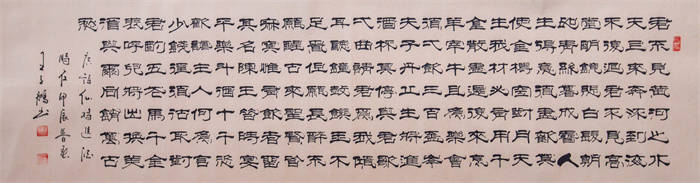 君不見黃河之水
天上來奔流到海
不復回君不見高
堂明鏡悲白髮朝
如青絲暮成雪人
生得意須盡歡莫
使金樽空對月天
生我材必有用千
金散盡還復來烹
羊宰牛且為樂會
須一飲三百杯岑
夫子丹丘生將進
酒杯莫停與君歌
一曲請君為我傾
耳聽鐘鼓饌玉不
足貴但願長醉不
願醒古來聖賢皆
寂寞惟有飲者留
其名陳王昔時宴
平樂斗酒十千恣
歡謔主人何為言
少錢徑須沽取對
君酌五花馬千金
裘呼兒將出換美
酒與爾同銷萬古
愁
唐詩仙將進酒
時在甲
王鵬書